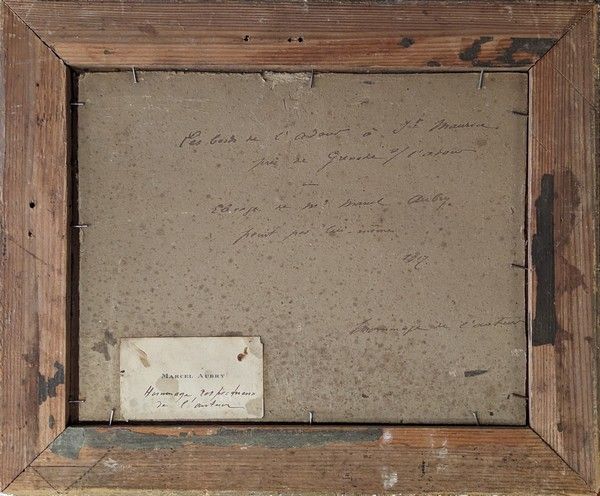 Les bords de l'adour à St Maurice
près de Grenade s/ l'adour
de Mr Marcel Aubry.
peint par lui-même
Hommage de l'auteur
MARCEL AUBRY
Hommage respectueux
de l'auteur